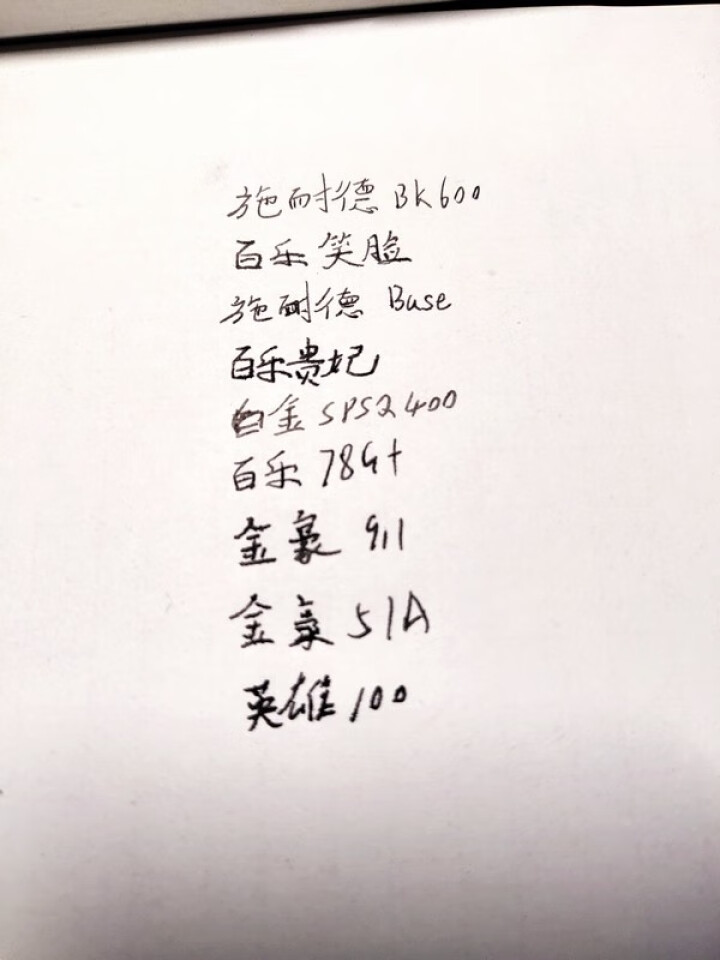 施耐德 BK600
百乐 笑脸
施耐德 Base
百乐贵妃
白金 SPS2400
百乐 78G+
金豪 911
金豪 51A
英雄 100